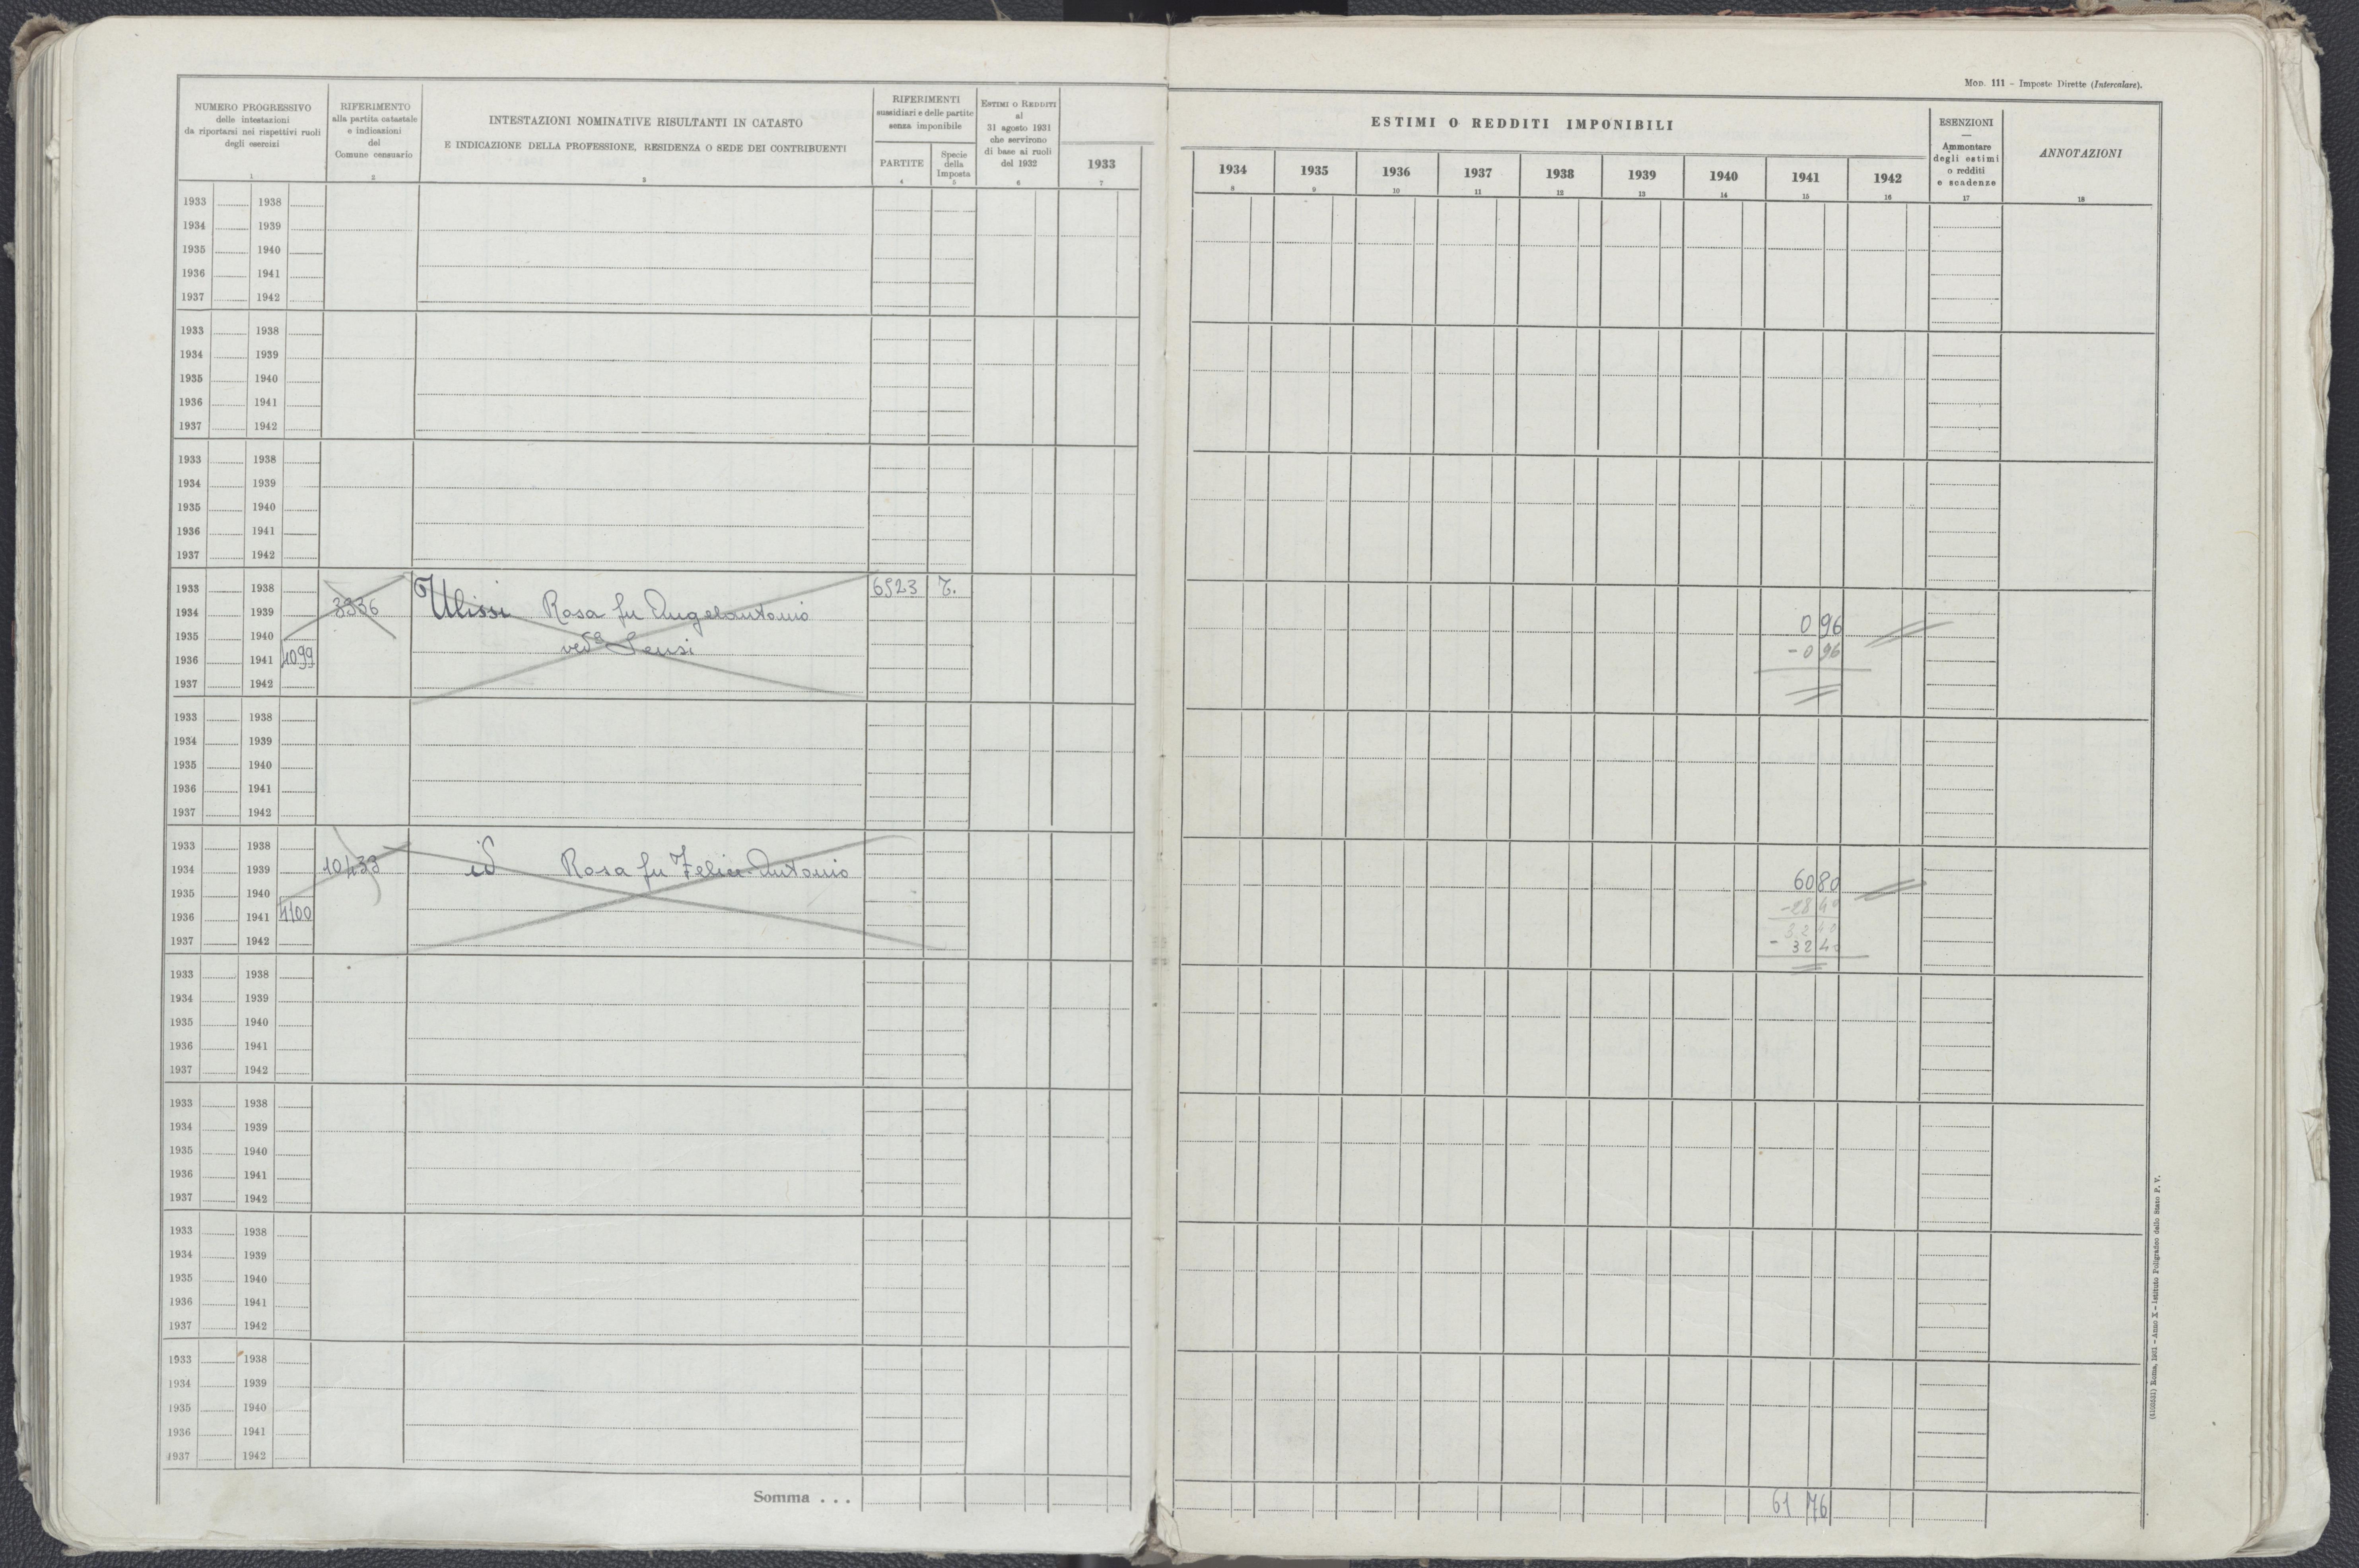 Mod. 111 – Imposte Dirette (Intercalare).
NUMERO PROGRESSIVO
delle intestazioni
da riportarsi nei rispettivi ruoli
degli esercizi
1
RIFERIMENTO
alla partita catastale
e indicazioni
del
Comune censuario
2
INTESTAZIONI NOMINATIVE RISULTANTI IN CATASTO
E INDICAZIONE DELLA PROFESSIONE, RESIDENZA O SEDE DEI CONTRIBUENTI
3
RIFERIMENTI
sussidiari e delle partite
senza imponibile
PARTITE
4
Specie
della
Imposta
5
Estimi o Redditi
al
31 agosto 1931
che servirono
di base ai ruoli
del 1932
6
1933
7
ESTIMI O REDDITI IMPONIBILI
1934 1935 1936 1937 1938 1939 1940 1941 1942
8 9 10 11 12 13 14 15 16
ESENZIONI
—
Ammontare
degli estimi
o redditi
e scadenze
17
ANNOTAZIONI
18
1933 1938
1934 1939
1935 1940
1936 1941
1937 1942
1933 1938
1934 1939
1935 1940
1936 1941
1937 1942
1933 1938
1934 1939
1935 1940
1936 1941
1937 1942
1933 1938 6923 T.
1934 1939 3936 Ulissi Rosa fu Angelantonio 0 96
1935 1940 ved.a Sensi - 0 96
1936 1941 1099
1937 1942
1933 1938
1934 1939
1935 1940
1936 1941
1937 1942
1933 1938
1934 1939 10433 id Rosa fu Felice-Antonio 60 80
1935 1940 - 28 40
1936 1941 1100 32 40
1937 1942 - 32 40
1933 1938
1934 1939
1935 1940
1936 1941
1937 1942
1933 1938
1934 1939
1935 1940
1936 1941
1937 1942
1933 1938
1934 1939
1935 1940
1936 1941
1937 1942
1933 1938
1934 1939
1935 1940
1936 1941
1937 1942
Somma . . . 61 76
Roma, 1931 – Anno X – Istituto Poligrafico dello Stato P. V.